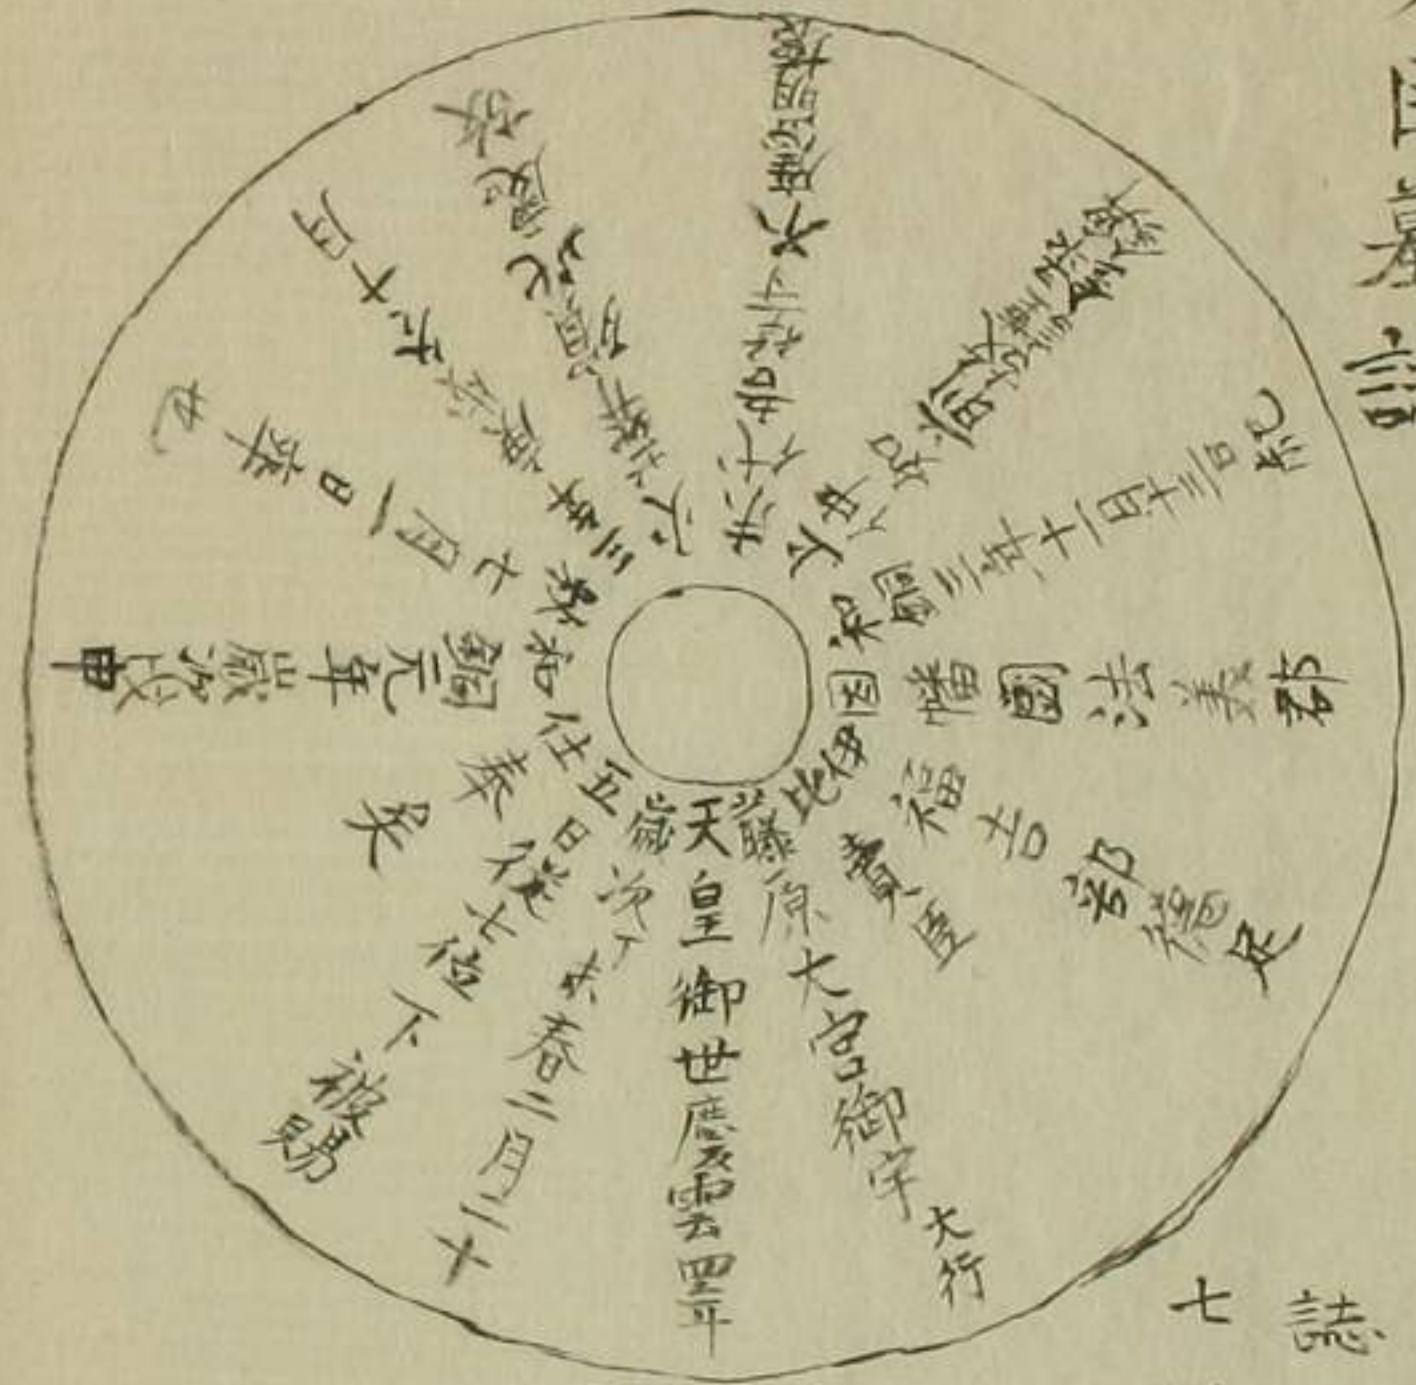 墓誌
因幡國法美郡
伊福吉部德足
比賣臣
藤原大宮御宇大行
天皇御世慶雲四年
歲次丁未春二月二十
五日從七位下被賜
仕奉矣
和銅元年歲次戊申
秋七月一日卒也
三年庚戌冬十月
火葬即殯此處故
末代君等不應崩壞
上件如前故謹錄錍
和銅三年十一月十三日己未
誌
七